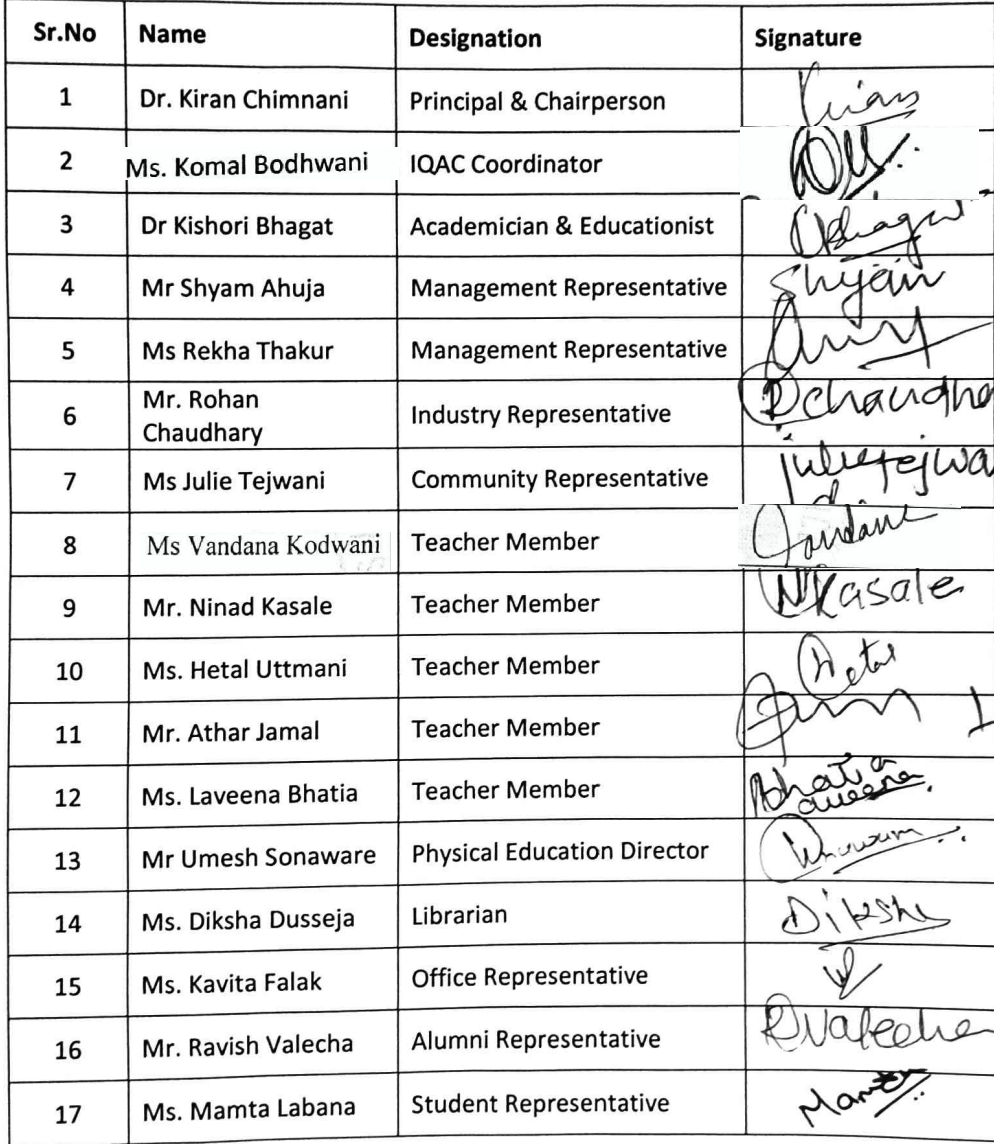 Sr.No Name Designation Signature
1 Dr. Kiran Chimnani Principal & Chairperson Kiran
2 Ms. Komal Bodhwani IQAC Coordinator
3 Dr Kishori Bhagat Academician & Educationist
4 Mr Shyam Ahuja Management Representative Shyam
5 Ms Rekha Thakur Management Representative
6 Mr. Rohan
Chaudhary Industry Representative
7 Ms Julie Tejwani Community Representative julie Tejwa
8 Ms Vandana Kodwani Teacher Member
9 Mr. Ninad Kasale Teacher Member NKasale
10 Ms. Hetal Uttmani Teacher Member Hetal
11 Mr. Athar Jamal Teacher Member
12 Ms. Laveena Bhatia Teacher Member Bhatia
13 Mr Umesh Sonaware Physical Education Director
14 Ms. Diksha Dusseja Librarian Diksha
15 Ms. Kavita Falak Office Representative
16 Mr. Ravish Valecha Alumni Representative RValecha
17 Ms. Mamta Labana Student Representative Mamta